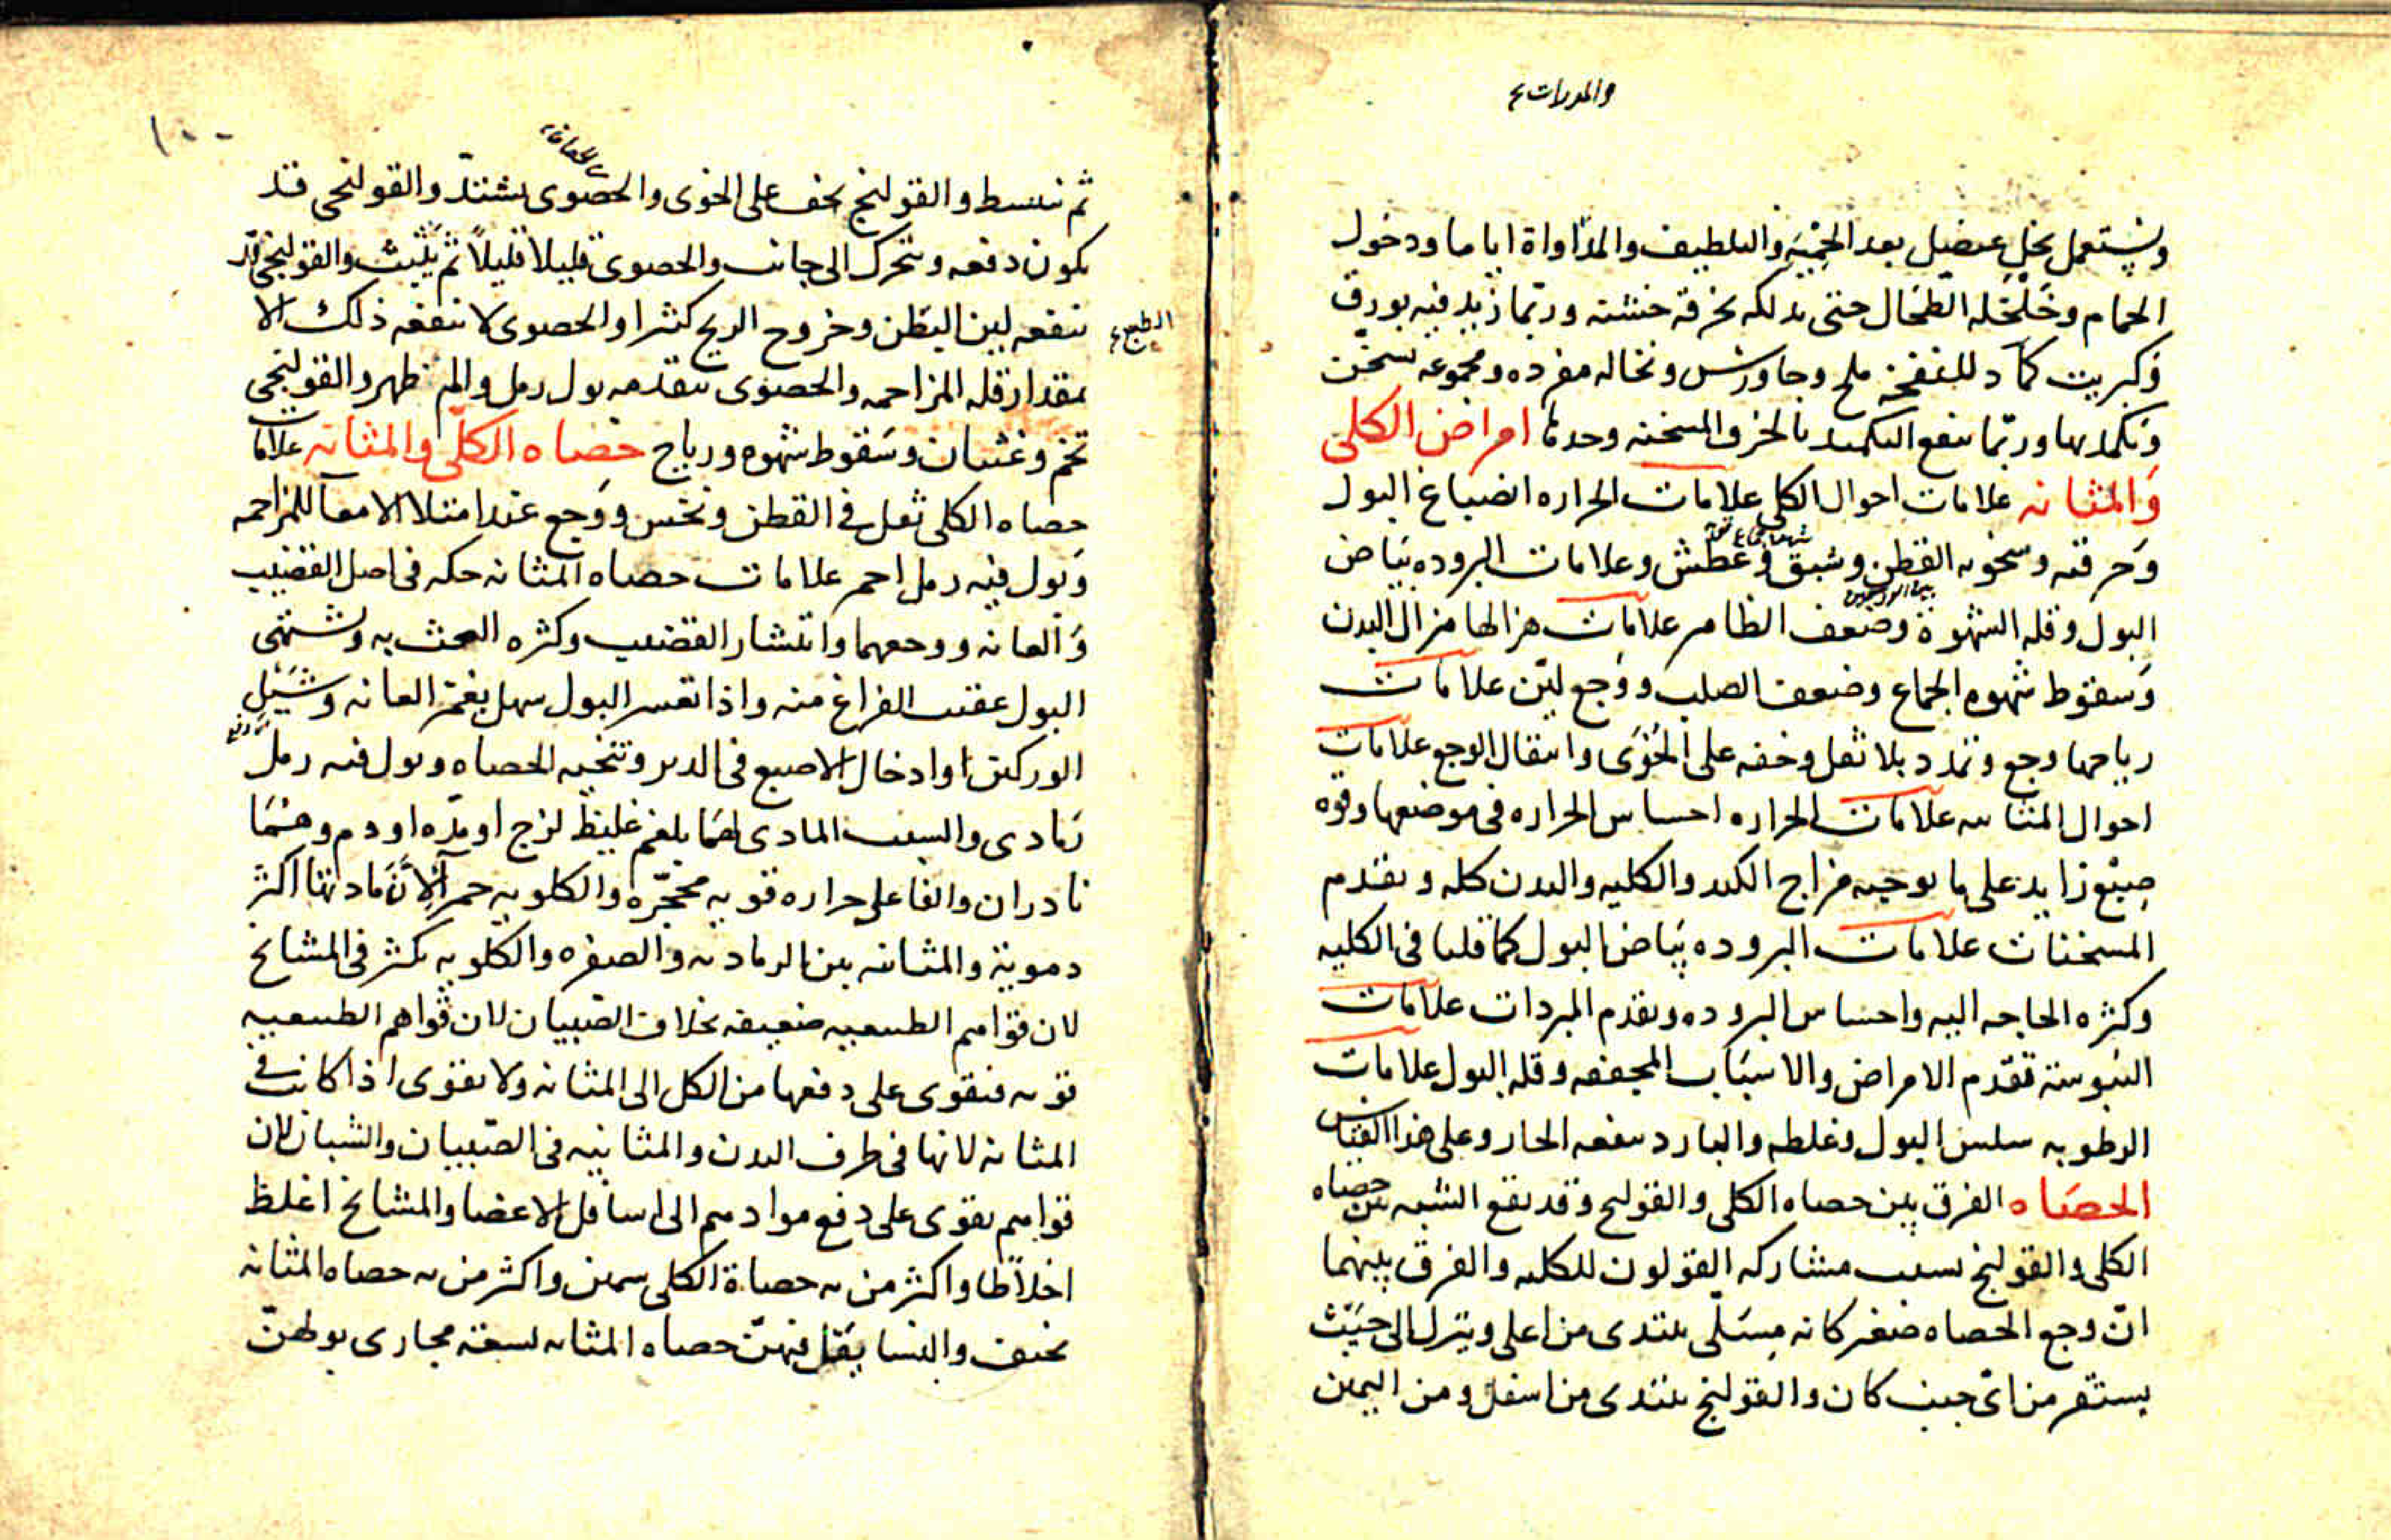 والمدرات
ويستعمل بخل عنصل بعد الحمية والتلطيف والمداواة اياما ودخول
الحمام وخلخله الطحال حتى يدلكه بخرقه خشنه وربما زيد فيه بورق
وكبريت كماد للنفخه ملح وجاورس ونخاله مفرده ومجموعه تسخن
وتكمد بها وربما ينفع التكميد بالخرق المسخنه وحدها امراض الكلى
والمثانه علامات احوال الكلى علامات الحراره انصباغ البول
شهوة جماع
وحرقته وسخونه القطن وشبق وعطش وعلامات البروده بياض
البول وقله الشهوة وضعف الظاهر علامات هزالها هزال البدن
وسقوط شهوه الجماع وضعف الصلب ووجع لين علامات
رياحها وجع وتمدد بلا ثقل وخفه على الخوى وانتقال الوجع علامات
احوال المثانه علامات الحراره احساس الحراره فى موضعها وقوه
صبغ زايد على ما يوجبه مزاج الكبد والكليه والبدن كله وتقدم
المسخنات علامات البروده بياض البول كما قلنا فى الكليه
وكثره الحاجه اليه واحساس البروده وتقدم المبردات علامات
اليبوسة تقدم الامراض والاسباب المجففه وقله البول علامات
الرطوبه سلس البول وغلظه والبارد ينفعه الحار وعلى هذا القياس
الحصاه الفرق بين حصاه الكلى والقولنج وقد يقع الشبه بين حصاه
الكلى والقولنج بسبب مشاركه القولون للكليه والفرق بينهما
ان وجع الحصاه صغير كانه مسلى يبتدى من اعلى وينزل الى حيث
يستقر من اى جنب كان والقولنج يبتدى من اسفل ومن اليمين
١٠٠
ثم ينبسط والقولنج يخف على الخوى والحصوى يشتد والقولنجى قد
يكون دفعه ويتحرك الى جانب والحصوى قليلا قليلاً ثم يثبت والقولنجى قد
ينفعه لين البطن وخروج الريح كثيرا والحصوى لا ينفعه ذلك الا
بمقدار قله المزاحمه والحصوى يتقدمه بول رمل والم ظهر والقولنجى
تخم وغثيان وسقوط شهوه ورياح حصاه الكلى والمثانه علامات
حصاه الكلى ثقل فى القطن ونخس ووجع عند امتلا الامعآ للمزاحمه
وبول فيه رمل احمر علامات حصاه المثانه حكه فى اصل القضيب
والعانه ووجعهما وانتشار القضيب وكثره العبث به ويشتهى
البول عقيب الفراغ منه واذا تعسر البول سهل بغمز العانه وشيل
الوركين او ادخال الاصبع فى الدبر وتنحيه الحصاه وبول فيه رمل
رمادى والسبب المادى لهما بلغم غليظ لزج او مدّه او دم وهما
نادران والفاعلى حراره قويه محجّره والكلويه حمرآ لان مادتها اكثر
دموية والمثانيه بين الرماديه والصفره والكلويه تكثر فى المشايخ
لان قواهم الطبيعيه ضعيفه بخلاف الصبيان لان قواهم الطبيعيه
قويه فتقوى على دفعها من الكلى الى المثانه ولا تقوى اذا كانت فى
المثانه لانها فى طرف البدن والمثانيه فى الصبيان والشبان لان
قواهم تقوى على دفع موادهم الى اسافل الاعضا والمشايخ اغلظ
اخلاطا واكثر من به حصاة الكلى سمين واكثر من به حصاه المثانه
نحيف والنسا يقل فيهن حصاه المثانه لسعة مجارى بولهن